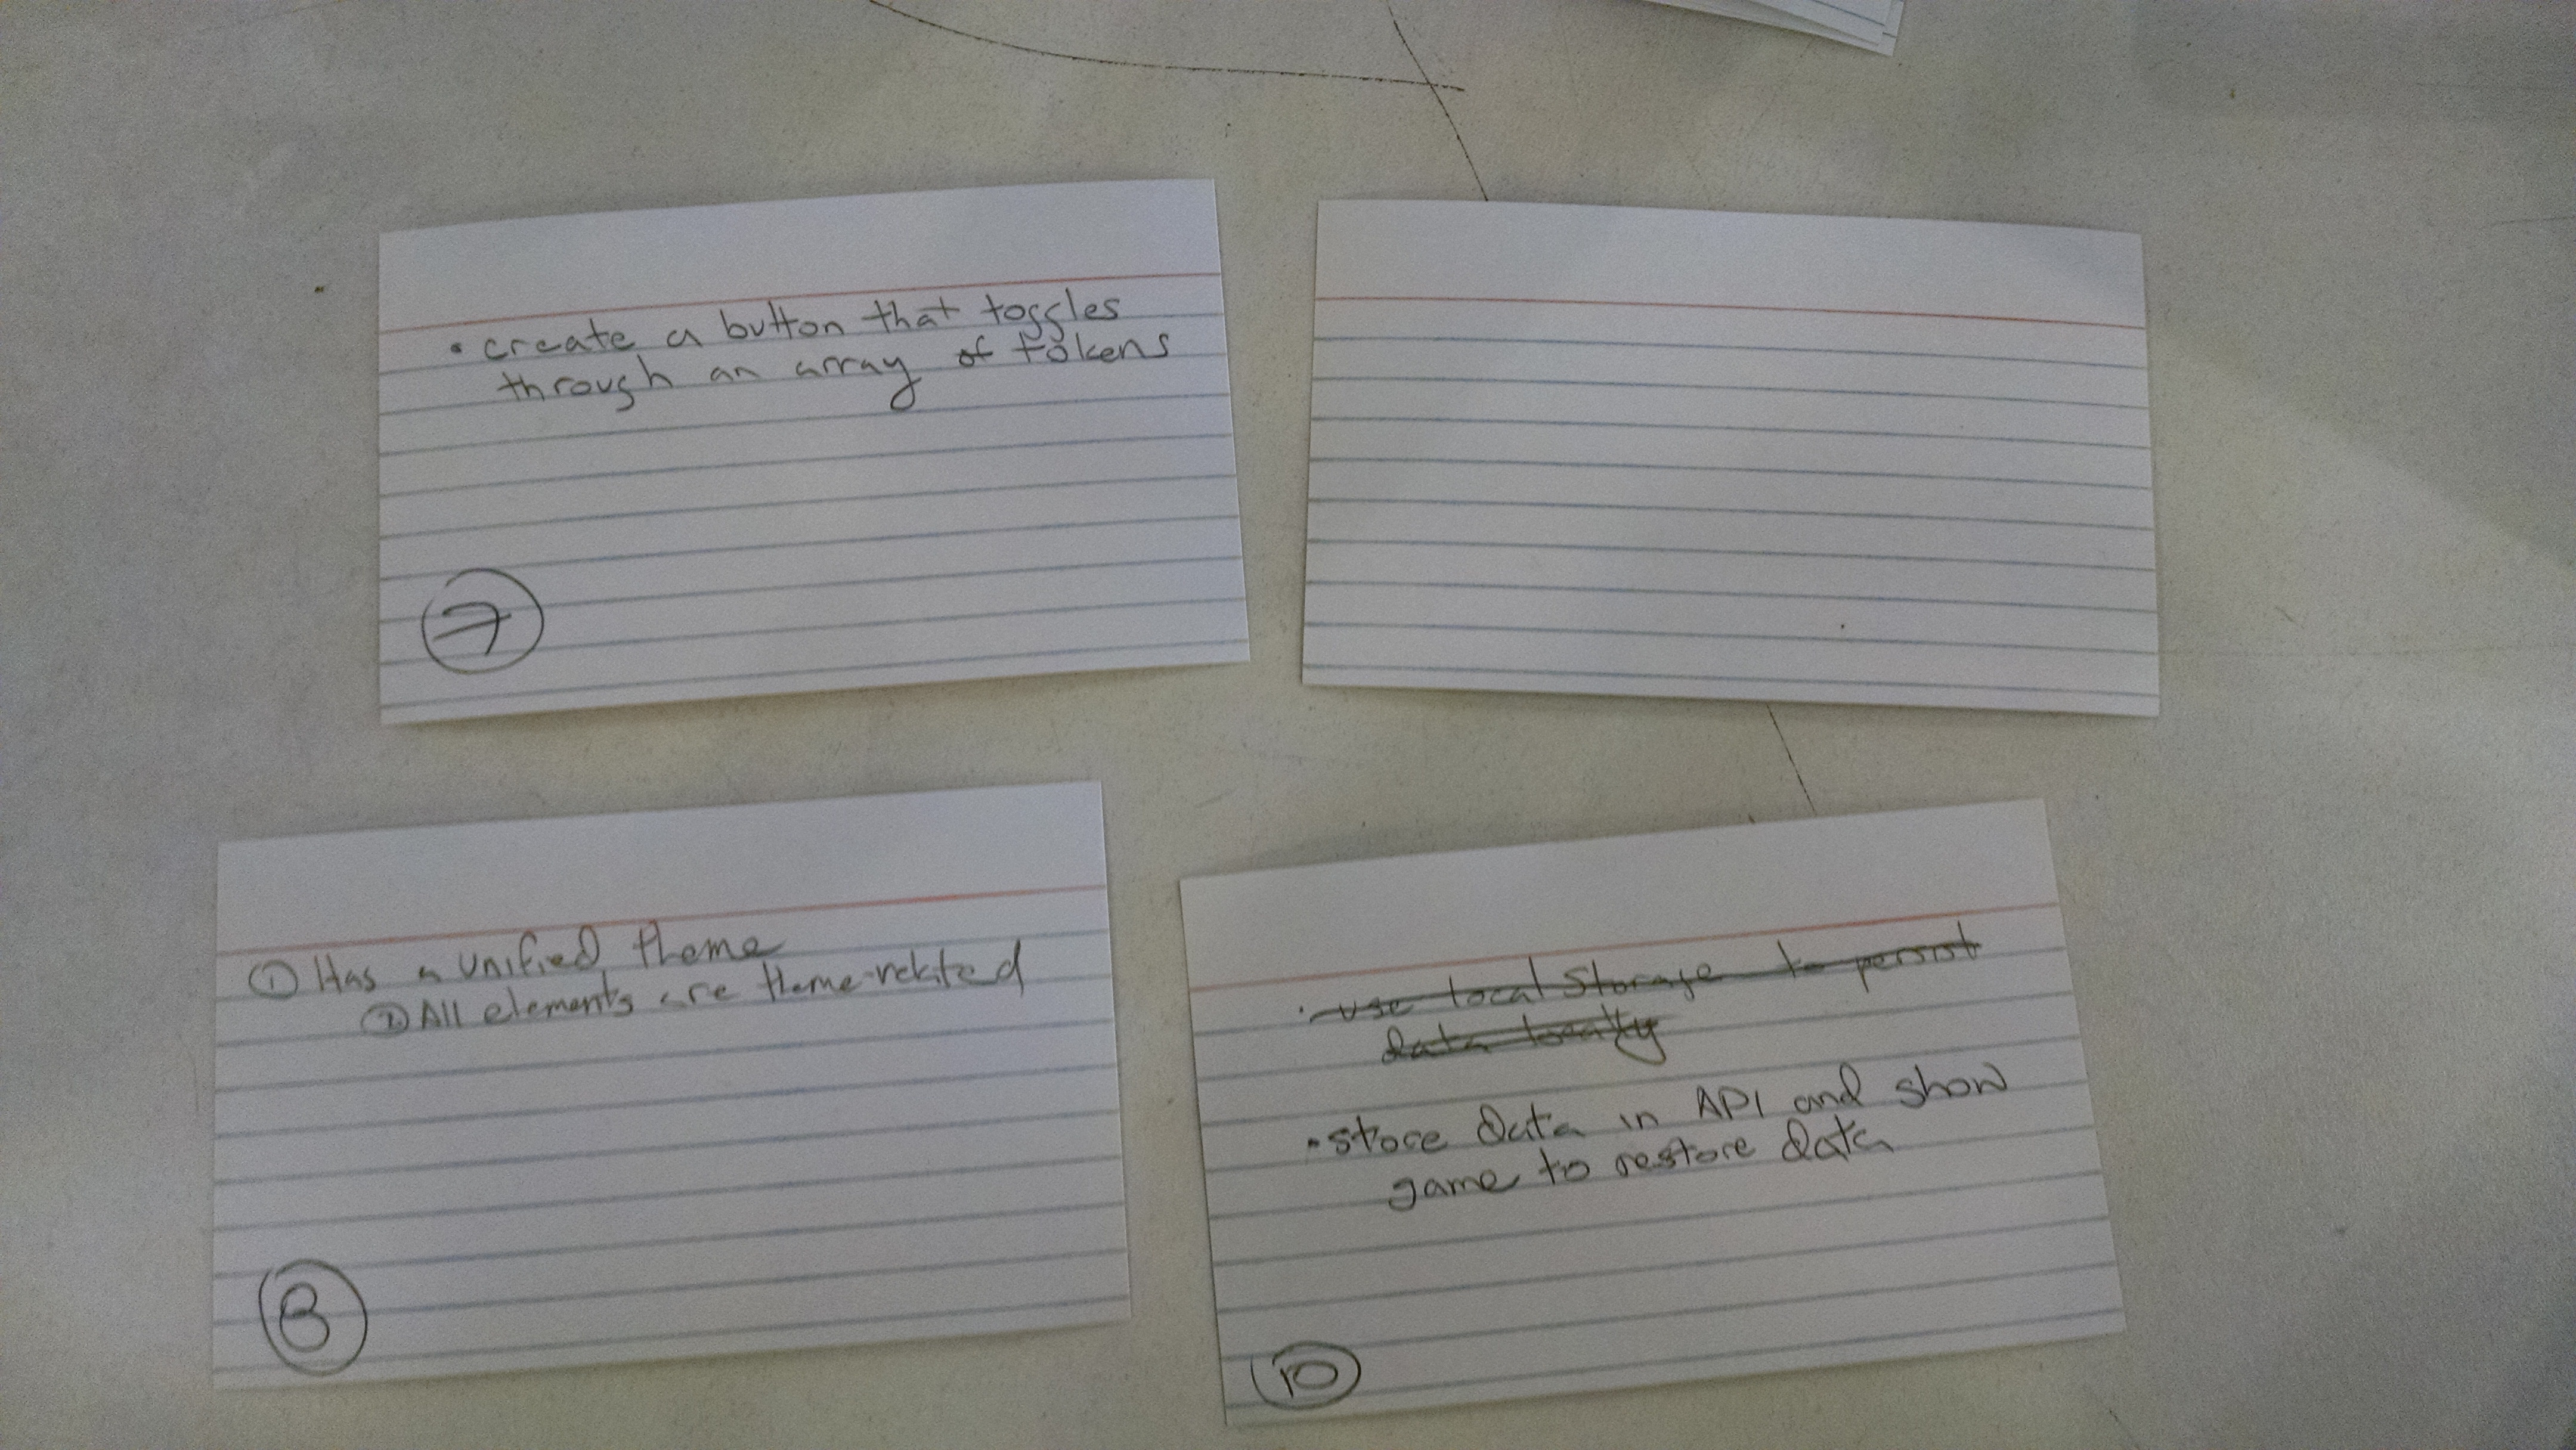 • create a button that toggles
through an array of tokens
7
① Has a unified theme
② All elements are theme-related
8
• use local Storage to persist
data locally
• store data in API and show
game to restore data
10